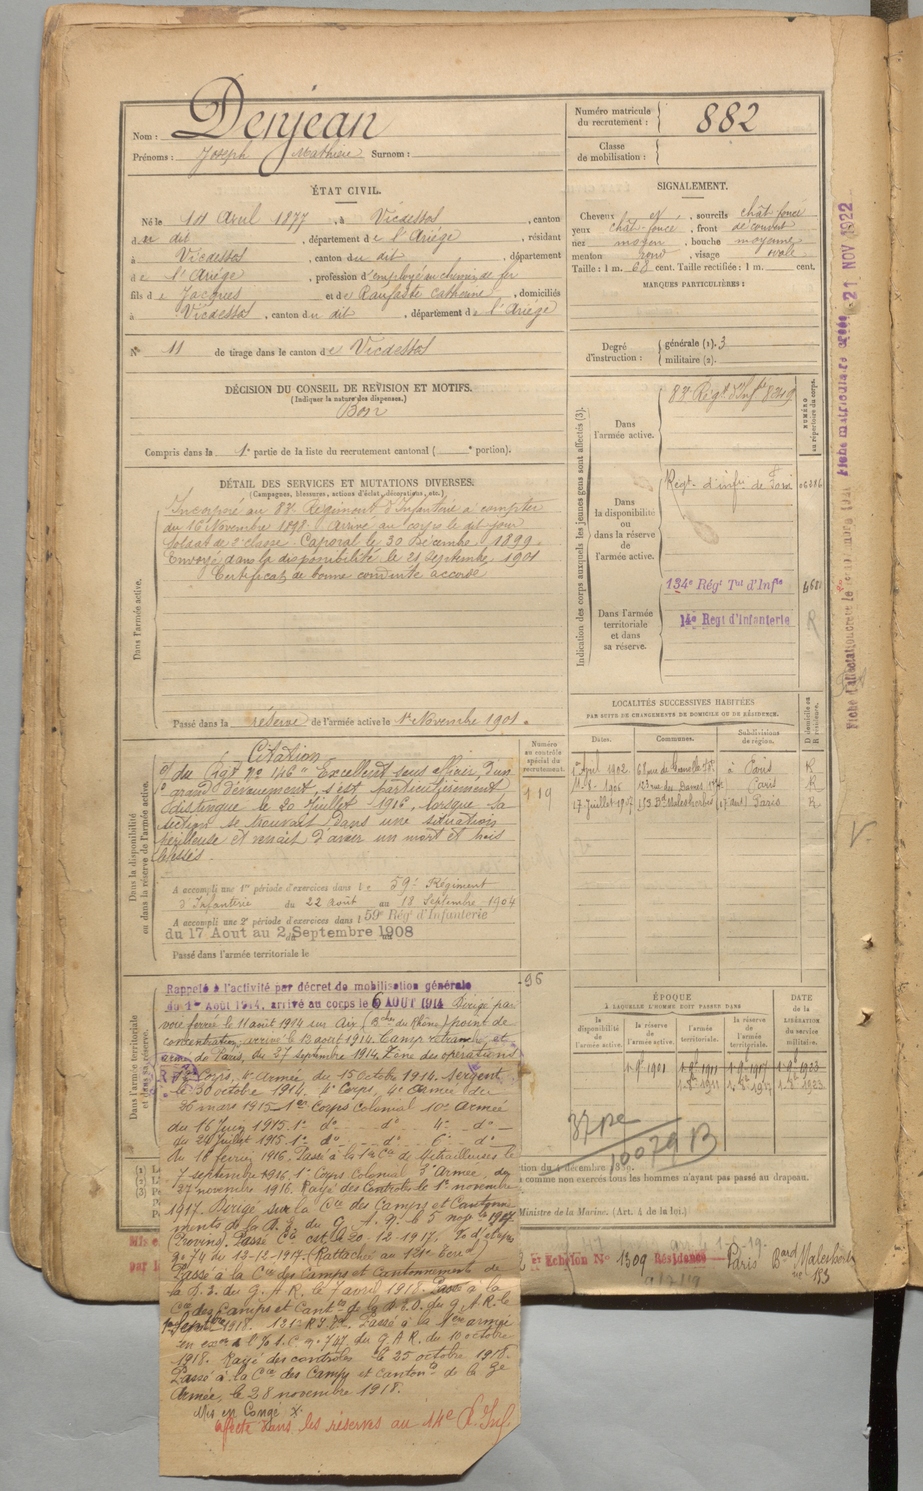 Nom : Denjean
Prénoms : Joseph Mathieu Surnom :
Numéro matricule du recrutement : 882
Classe de mobilisation :
ÉTAT CIVIL.
Né le 14 Avril 1877, à Vicdessos, canton
du dit, département de l'Ariége, résidant
à Vicdessos, canton du dit, département
de l'Ariége, profession d'employé au chemin de fer
fils de Jacques et de Raufaste Catherine, domiciliés
à Vicdessos, canton du dit, département de l'Ariége
N° 11 de tirage dans le canton de Vicdessos
SIGNALEMENT.
Cheveux et, sourcils chât. foncé
yeux chât. foncé, front découvert
nez moyen, bouche moyenne
menton rond, visage ovale
Taille : 1 m. 68 cent. Taille rectifiée : 1 m. cent.
MARQUES PARTICULIÈRES :
Degré d'instruction : générale (1). 3
militaire (2).
DÉCISION DU CONSEIL DE REVISION ET MOTIFS.
(Indiquer la nature des dispenses.)
Bon
Compris dans la 1e partie de la liste du recrutement cantonal ( e portion).
DÉTAIL DES SERVICES ET MUTATIONS DIVERSES.
(Campagnes, blessures, actions d'éclat, décorations, etc.)
Dans l'armée active.
Incorporé au 83e Régiment d'Infanterie à compter
du 16 Novembre 1898. Arrivé au corps le dit jour
Soldat de 2e classe. Caporal le 30 Décembre 1899.
Envoyé dans la disponibilité le 21 Septembre 1901
Certificat de bonne conduite accordé
Passé dans la réserve de l'armée active le 1er Novembre 1901.
Indication des corps auxquels les jeunes gens sont affectés (3).
NUMÉRO au répertoire du corps.
Dans l'armée active.
83e Régt d'Infie
Dans la disponibilité ou dans la réserve de l'armée active.
Régt d'infie de Foix
Dans l'armée territoriale et dans sa réserve.
134e Régt Tal d'Infie
14e Régt d'Infanterie
R
LOCALITÉS SUCCESSIVES HABITÉES
PAR SUITE DE CHANGEMENTS DE DOMICILE OU DE RÉSIDENCE.
Dates. Communes. Subdivisions de région. D domicile ou R résidence.
Avril 1902 rue de Grenelle à Paris R
123 rue des Dames (17e) Paris R
17 Juillet 1907 153 Bd Malesherbes (17e art) Paris R
Numéro au contrôle spécial du recrutement.
119
96
Dans la disponibilité ou dans la réserve de l'armée active.
Citation
du Régt No 146 "Excellent sous officier, d'un
grand dévouement, s'est particulièrement
distingué le 20 Juillet 1916, lorsque la
section se trouvait dans une situation
périlleuse et venait d'avoir un mort et trois
blessés.
A accompli une 1re période d'exercices dans le 59e Régiment
d'Infanterie du 22 août au 18 Septembre 1904
A accompli une 2e période d'exercices dans l 59e Rég d'Infanterie
du 17 Aout au 2 Septembre 1908
Passé dans l'armée territoriale le
Dans l'armée territoriale et dans sa réserve.
Rappelé à l'activité par décret de mobilisation générale
du 1er Août 1914, arrivé au corps le 6 AOUT 1914 Dirigé par
voie ferrée le 11 août 1914 sur Aix (Bches du Rhône) point de
concentration, arrivé le 13 août 1914. Camp retranché
de Paris, du 27 septembre 1914. Zone des opérations
Corps, 6e Armée, du 15 Octobre 1914. Sergent
le 30 octobre 1914. 4e Corps, 4e Armée du
26 mars 1915. 1er Corps Colonial 10e Armée
du 16 Juin 1915. 1er do do 4e do
du 24 Juillet 1915. 1er do do 6e do
du 18 février 1916. Passé à la 1re Cie de Mitrailleuses le
7 septembre 1916. 1er Corps Colonial 3e Armée, du
27 novembre 1916. Rayé des Contrôles le 1er novembre
1917. Dirigé sur la Cie des Camps et Cantonne
ments de la D. E. du G. A. N. le 5 nov. 1917
(Provins). Passé le 20-12-1917,
No 74 du 13-12-1917. (Rattaché au 121e
Passé à la Cie des Camps et Cantonnements de
la D. E. du G. A. R. le 7 avril 1918. Passé à la
Cie des Camps et Cantts de la D.E.O. du G. A. R. le
1er Septbre 1918. Passé à la armée
en exon No 747 du G. A. R. du 10 octobre
1918. Rayé des contrôles le 25 octobre 1918.
Passé à la Cie des Camps et Cantonts de la 3e
Armée, le 28 novembre 1918.
Mis en Congé
Affecté dans les réserves au 14e R. Inf.
ÉPOQUE
À LAQUELLE L'HOMME DOIT PASSER DANS
la disponibilité de l'armée active. la réserve de l'armée active. l'armée territoriale. la réserve de l'armée territoriale.
DATE de la LIBÉRATION du service militaire.
1-9bre 1901 1-9bre 1911 1-9bre 1917 1-9bre 1923
10079 B
tion du 4 décembre 1889.
comme non exercés tous les hommes n'ayant pas passé au drapeau.
Ministre de la Marine. (Art. 4 de la loi.)
Echelon No 1309 Résidence Paris Bard Malesherbes
153
21 NOV 1922